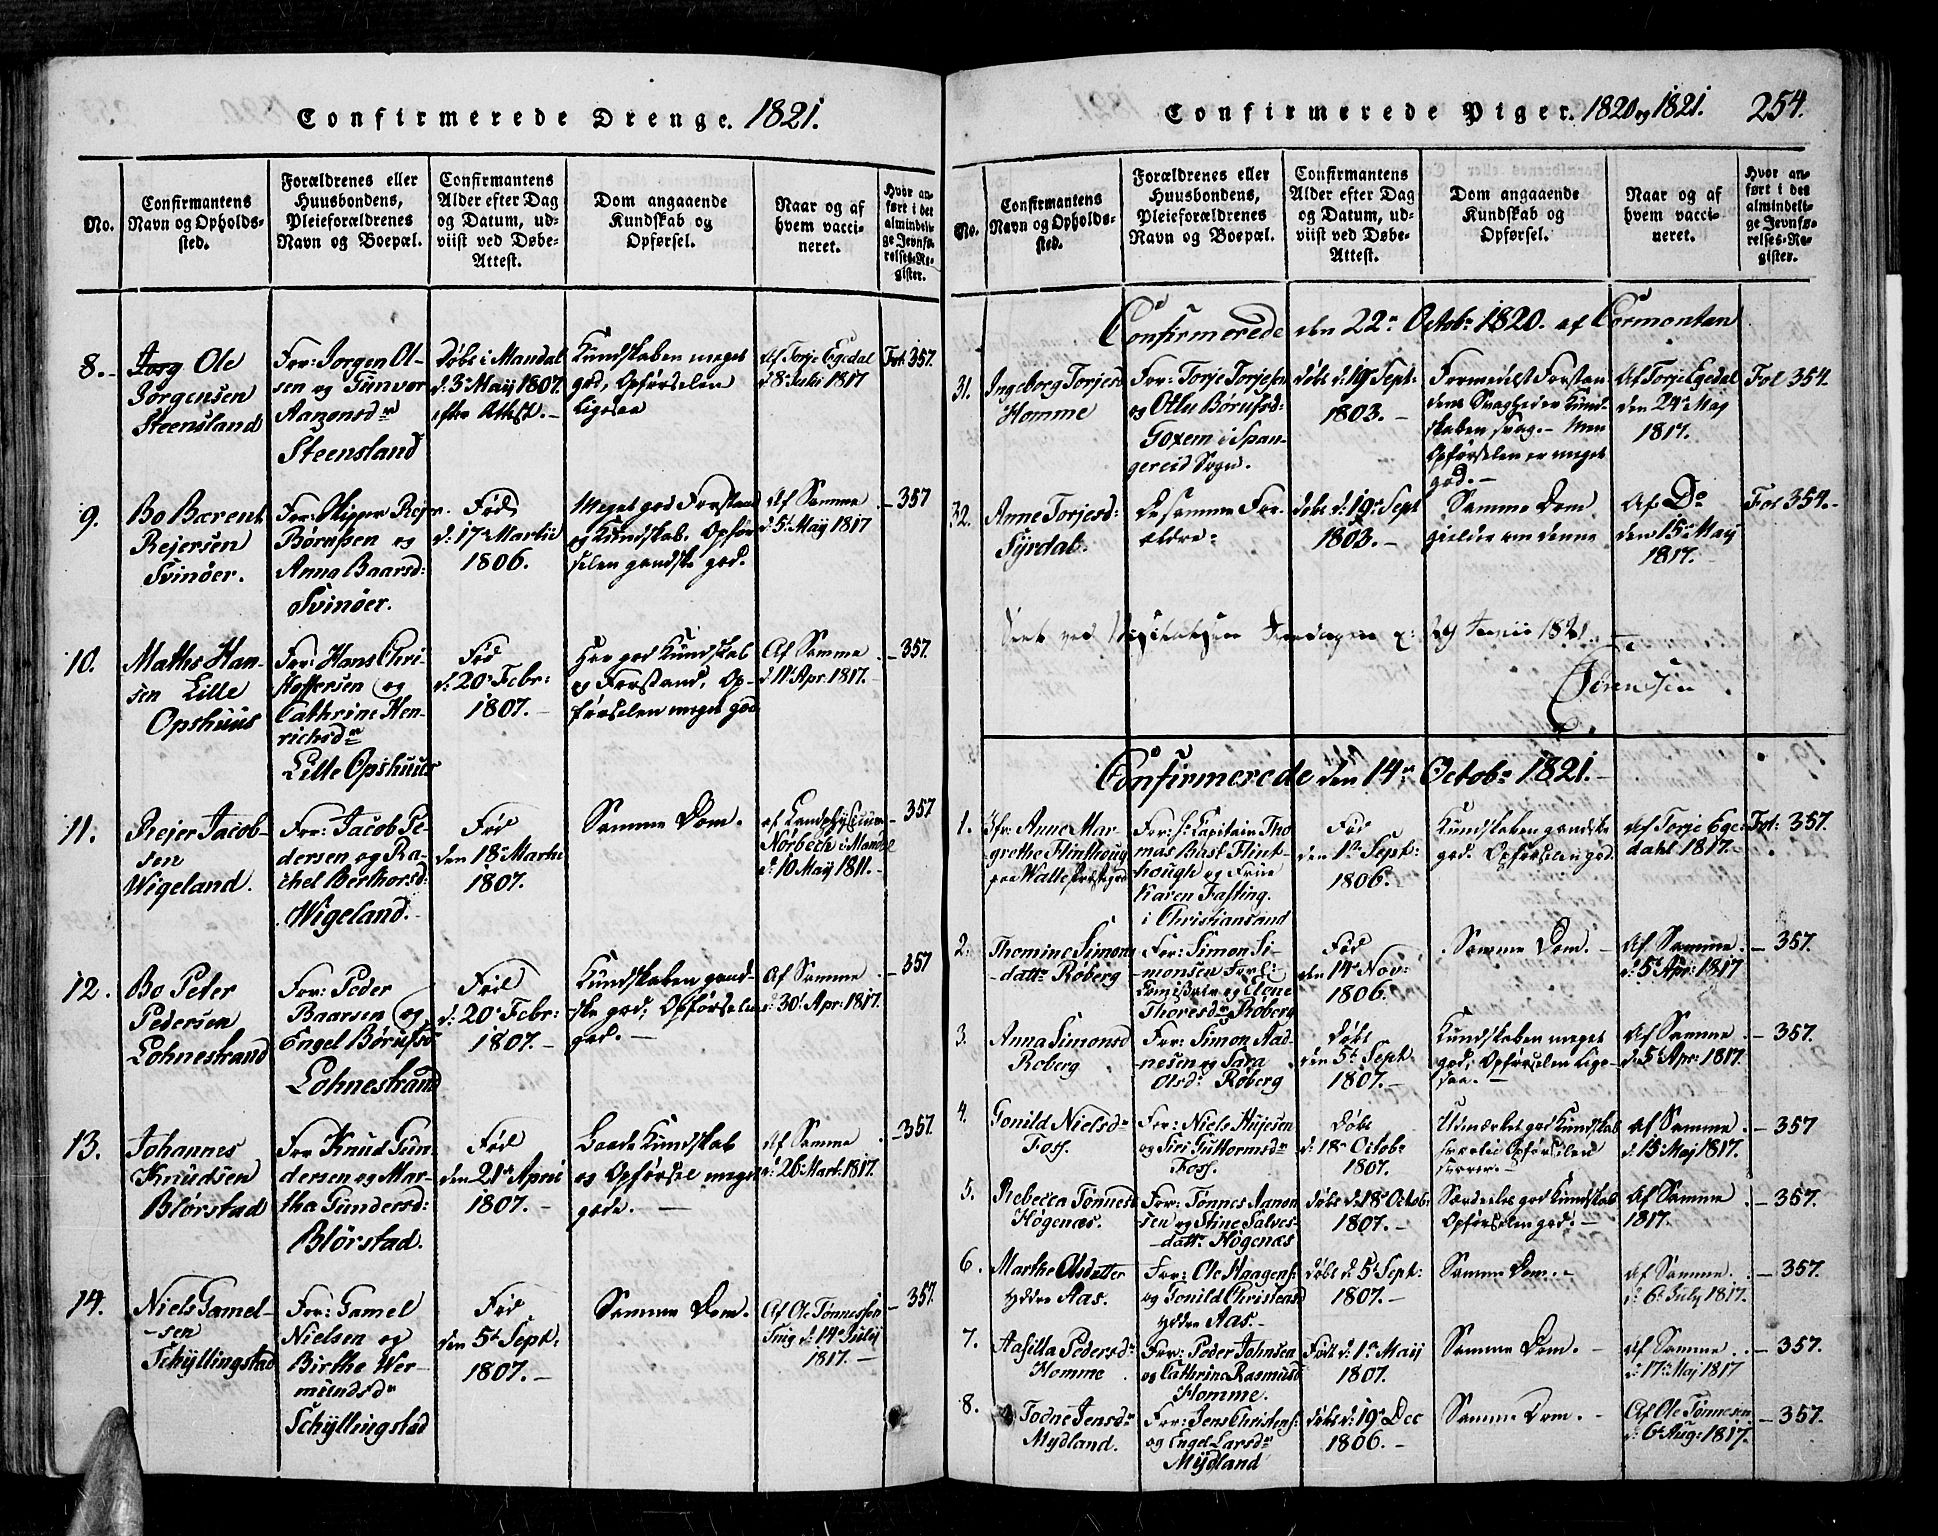 Confirmerede Drenge. 1821.
No.
Confirmantens
Navn og Opholds-
sted.
Forældrenes eller
Huusbondens,
Pleieforældrenes
Navn og Boepæl.
Confirmantens
Alder efter Dag
og Datum, ud-
viist ved Døbe-
Attest.
Dom angaaende
Kundskab og
Opførsel.
Naar og af
hvem vacci-
neret.
Hvor an-
ført i det
almindeli-
ge Jevnfø-
relses-Re-
gister.
8.
Ole
Jørgensen
Steensland
For: Jørgen Ol-
sen og Gunvor
Aanonsdr
Steensland
Døbt i Mandal
d. 3 Maij 1807.
efter Attest.
Kundskaben meget
god, Opførselen
ligesaa
Af Torje Egedal
d 8 Julii 1817
Fol: 357.
9.
Bo Bærent
Rejersen
Svinøer.
For: Skipper Rejer
Børufsen og
Anna Baarsd:
Svinøer.
Fød
d: 17de Martii
1806.
Meget god Forstand
og Kundskab. Opfør-
selen gandske god.
Af Samme
d: 5t Maij 1817
357
10.
Mathis Han-
sen Lille
Opshuus
For: Hans Chri-
stoffersen og
Cathrine Hen-
richsdr
Lille Opshuus
Fød
d: 20de Febr:
1807.
Har god Kundskab
og Forstand, Op-
førselen meget god
Af Samme
d 11t Apr: 1817.
357.
11.
Rejer Jacob-
sen
Wigeland.
For: Jacob Pe-
dersen og Ra-
chel Berthorsd:
Wigeland.
Fød
den 18de Martii
1807.
Samme Dom.
af Landphysicum
Nørbech i Mandal
d: 10 Maij 1811.
357
12.
Bo Peter
Pedersen
Lohnestrand
For: Peder
Baarsen og
Engel Børufsd
Lohnestrand
Fød
d: 20de Febr:
1807.
Kundskaben gand-
ske god, Opførselen
god.
Af Samme
d: 30t Apr: 1817.
357
13.
Johannes
Knudsen
Blørstad
For Knud Gun-
dersen og Mar-
tha Gundersd:
Blørstad.
Fød
den 21de April
1807.
Baade Kundskab
og Opførsel meget
gode.
Af Samme
d: 26 Mart: 1817.
357.
14.
Niels Gamel-
sen
Schyllingstad
For: Gamel
Nielsen og
Birthe Wer-
mundsdr
Schyllingstad
Fød
den 5t Sept:
1807.
Samme Dom.
Af Ole Tønnessen
Snig d: 14de Julij
1817.
357.
Confirmerede Piger. 1820 og 1821. 254.
No.
Confirmantens
Navn og Opholds-
sted.
Forældrenes eller
Huusbondens,
Pleieforældrenes
Navn og Boepæl.
Confirmantens
Alder efter Dag
og Datum, ud-
viist ved Døbe-
Attest.
Dom angaaende
Kundskab og
Opførsel.
Naar og af
hvem vacci-
neret.
Hvor an-
ført i det
almindeli-
ge Jevnfø-
relses-Re-
gister.
Confirmerede den 22de Octobr 1820. af Cormontan
31.
Ingeborg Torjesd
Homme
For: Torje Torjesen
og Ollu Børufsd:
Goxem i Span-
gereid Sogn.
døbt d: 19de Sept:
1803.
Formedelst Forstan
dens Svaghed er Kund-
skaben svag. Men
Opførselen er meget
god.
Af Torje Egedal
den 24de Maij
1817.
Fol 354.
32.
Anne Torjesd:
Syrdal.
De samme For-
ældre.
døbt d: 19de Sept
1803.
Samme Dom
gielder om denne
Af Do
den 15de Maij
1817.
Fol 354.
Seet ved Visitatsen 29 Junii 1821.
Sørensen
Confirmerede den 14de Octobr 1821.
1.
Jfr Anne Mar-
grethe Flinthoug
paa Walle Præstegaard
For: Sr Capitain Tho
mas Bast Flint-
hough og Frue
Karen Fasting.
i Christiansand
Fød
den 1st Sept:
1806.
Kundskaben gandske
god. Opførselen god.
Af Torje Ege-
dahl 1817.
Fol: 357.
2.
Thomine Simons
datter Røberg
For: Simon Si-
monsen Forli-
Comissair og Elene
Thoresdr Røberg
Fød
den 14de Nov:
1806.
Samme Dom.
Af Samme
d: 5t Apr: 1817
357.
3.
Anna Simonsd
Røberg
For: Simon Aad-
nesen og Sara
Olsdr Røberg
Døbt
den 5t Sept:
1807.
Kundskaben meget
god, Opførselen lige-
saa.
Af Samme
d. 5t Apr: 1817.
357.
4.
Gonild Nielsdr
Foss.
For: Niels Hujesen
og Siri Guttormsdr
Foss.
Døbt
d: 18de Octobr
1807.
Udmærket god Kundskab
Opførselen
Af Samme
d: 15 Maj 1817.
357
5.
Rebecca Tønnesd
Høgenæs.
For: Tønnes Aanon
sen og Stine Salves-
datter Høgenæs
døbt d: 18de Octobr
1807.
Særdeles god Kundskab
Opførselen god.
Af Samme
1817.
357.
6.
Marthe Olsdatter
Yddre Aas.
For: Ole Haagens:
og Gonild Christensd
Yddre Aas.
døbt d: 5t Sept:
1807.
Samme Dom.
Af Samme.
d: 6t July 1817.
357.
7.
Aasilla Pedersdr
Homme
For: Peder Johnsen
og Cathrina Rasmusd
Homme.
Født d: 1ste Maij
1807.
Samme Dom.
Af Samme
d: 17de Maj 1817
357.
8.
Todne Jensdr
Mydland.
For: Jens Christens:
og Engel Larsdr
Mydland
døbt d: 19de Dec
1806.
Samme Dom.
Af Ole Tønnesen
d: 6te Aug: 1817.
357.